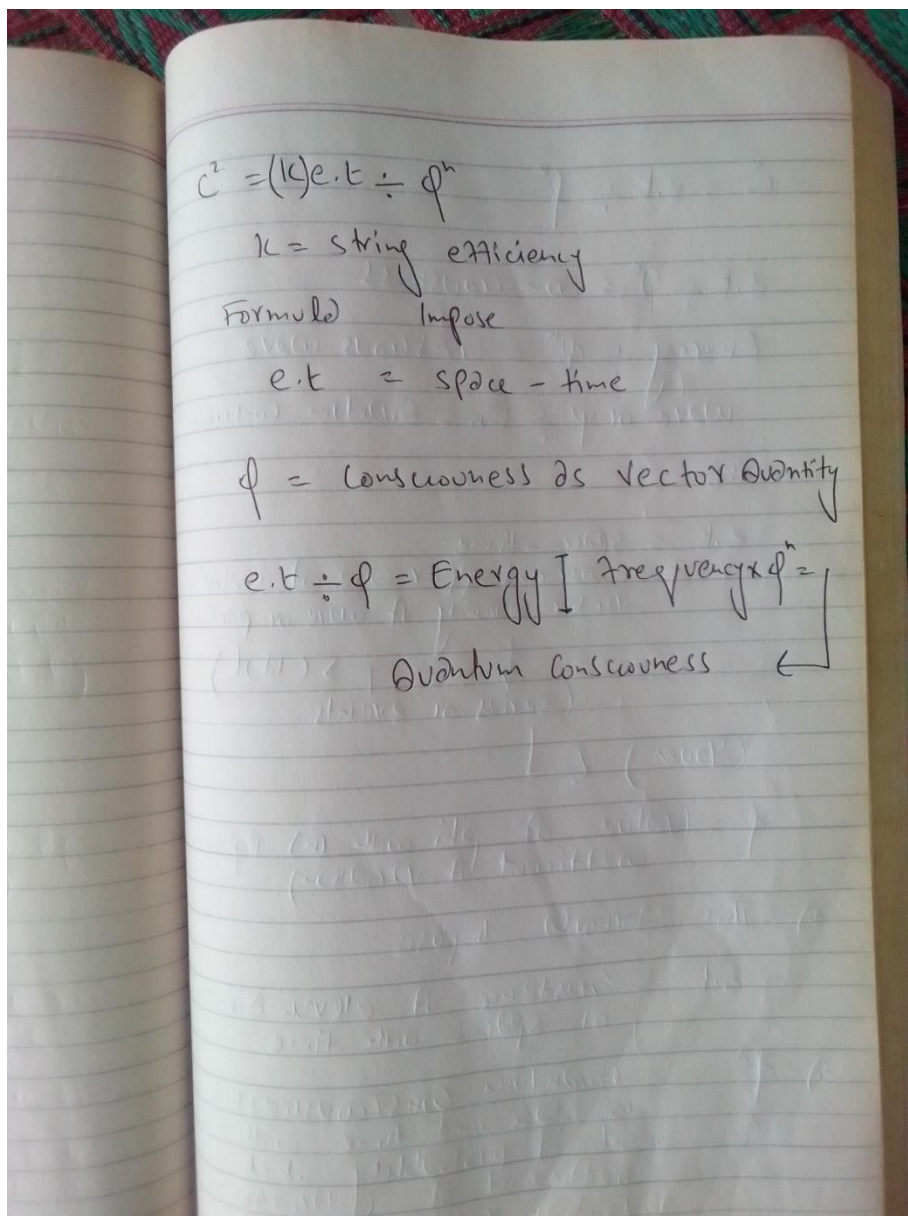 c² = (k)e.t ÷ φⁿ
k = string efficiency
Formula Impose
e.t = space - time
φ = Consciouness as vector Quantity
e.t ÷ φ = Energy I frequency x φⁿ =
Quantum Consciouness ←